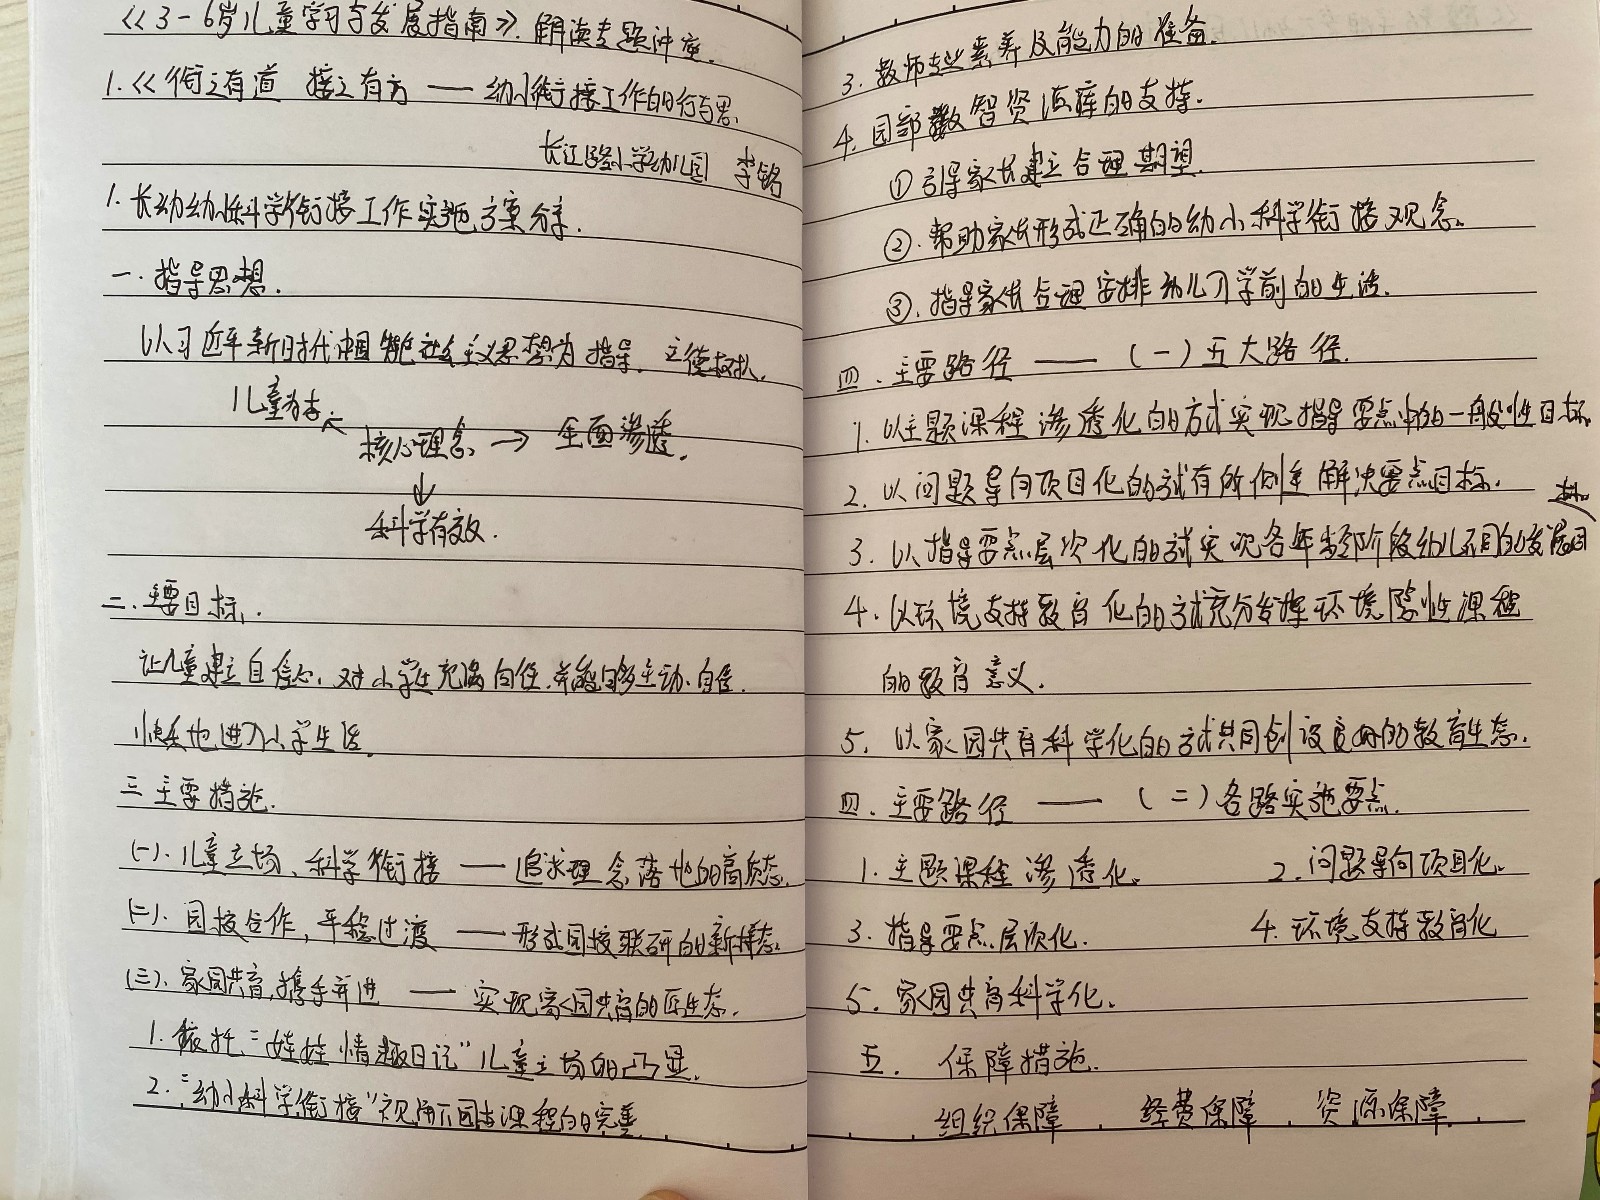 《3-6岁儿童学习与发展指南》解读专题讲座.
1.《衔之有道 接之有方 —— 幼小衔接工作的行与思
长江路小学幼儿园 李铭
1.长幼幼小科学衔接工作实施方案分享.
一.指导思想.
以习近平新时代中国特色社会主义思想为指导.立德树人.
儿童为本 ↖ 核心理念 → 全面渗透.
↓
科学有效.
二.主要目标.
让儿童建立自信心,对小学生充满向往.并能够多主动.自信.
快乐地进入小学生活.
三 主要措施.
(一).儿童立场、科学衔接 —— 追求理念落地的高质态.
(二).园校合作,平稳过渡 —— 形成园校联研的新样态.
(三).家园共育,携手并进 —— 实现家园共育的正生态.
1.依托"娃娃情趣日记"儿童立场的凸显.
2."幼小科学衔接"视角下园本课程的完善
3.教师专业素养及能力的准备.
4.园部数智资源库的支持.
①引导家长建立合理期望.
②.帮助家长形成正确的幼小科学衔接观念.
③.指导家长合理安排幼儿入学前的生活.
四.主要路径 ——(一)五大路径.
1.以主题课程渗透化的方式实现指导要点中的一般性目标.
2.以问题导向项目化的方式有所侧重解决要点目标.
3.以指导要点层次化的方式实现各年龄阶段幼儿不同的发展目标.
4.以环境支持教育化的方式充分发挥环境隐性课程
的教育意义.
5.以家园共育科学化的方式共同创设良好的教育生态.
四.主要路径 ——(二)各路实施要点.
1.主题课程渗透化. 2.问题导向项目化.
3.指导要点层次化. 4.环境支持教育化
5.家园共育科学化.
五.保障措施.
组织保障、经费保障、资源保障.